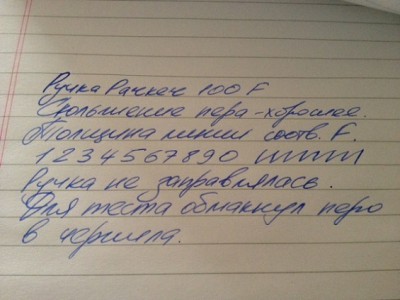 Ручка Рачкеч 100 F
Скольжение пера - хорошее.
Толщина линии соотв. F.
1234567890
Ручка не заправлялась.
Для теста обмакнул перо
в чернила.